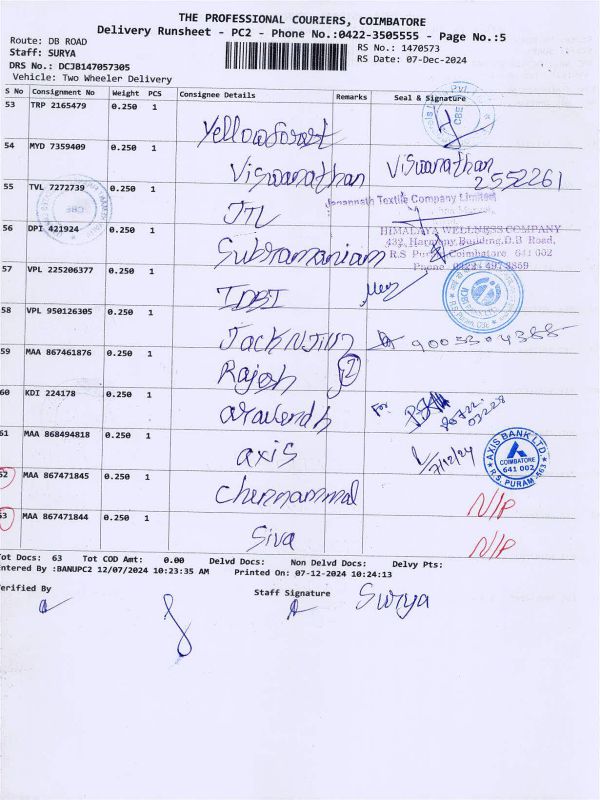 THE PROFESSIONAL COURIERS, COIMBATORE
Delivery Runsheet - PC2 - Phone No.:0422-3505555 - Page No.:5
Route: DB ROAD
Staff: SURYA
DRS No.: DCJB147057305
Vehicle: Two Wheeler Delivery
RS No.: 1470573
RS Date: 07-Dec-2024
S No Consignment No Weight PCS Consignee Details Remarks Seal & Signature
53 TRP 2165479 0.250 1
Yellowforest
CBE
54 MYD 7359409 0.250 1
Viswanathan Viswanathan
2552261
55 TVL 7272739 0.250 1
JTL
Jagannath Textile Company Limited
CBE
56 DPI 421924 0.250 1
Subramaniam
HIMALAYA WELLNESS COMPANY
432, Harmony Building, D.B Road,
R.S Puram, Coimbatore 641 002
Phone 0422 497 3859
57 VPL 225206377 0.250 1
IDBI
58 VPL 950126305 0.250 1
Jack N Jill 9005304388
59 MAA 867461876 0.250 1
Rajesh 2
60 KDI 224178 0.250 1
aravendh For
61 MAA 868494818 0.250 1
axis 7/12/24
AXIS BANK LTD.
COIMBATORE
641 002
R.S. PURAM -563
62 MAA 867471845 0.250 1
Chennammal N/P
63 MAA 867471844 0.250 1
Siva N/P
Tot Docs: 63 Tot COD Amt: 0.00 Delvd Docs: Non Delvd Docs: Delvy Pts:
Entered By :BANUPC2 12/07/2024 10:23:35 AM Printed On: 07-12-2024 10:24:13
Verified By Staff Signature Surya